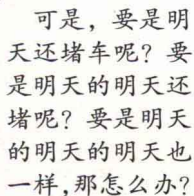 可是，要是明
天还堵车呢？要
是明天的明天还
堵呢？要是明天
的明天的明天也
一样，那怎么办？